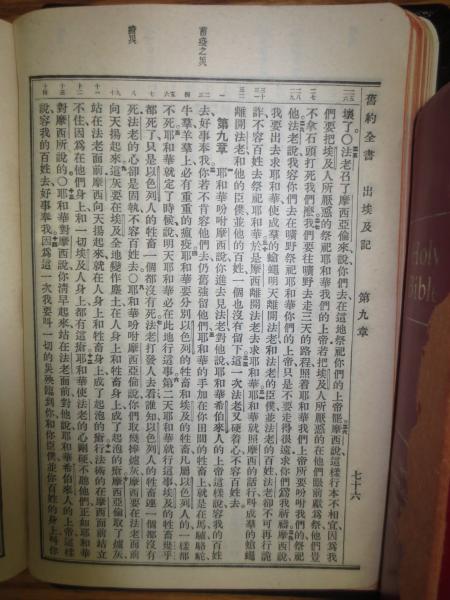 舊約全書 出埃及記 第九章 七十六
壞了〇法老召了摩西亞倫來說你們去在這地祭祀你們的上帝罷摩西說這樣行本不相宜因爲我
們要把埃及人所厭惡的祭祀耶和華我們的上帝若把埃及人所厭惡的在他們眼前獻爲祭他們豈
不拿石頭打死我們麼我們要往曠野去走三天的路程照着耶和華我們上帝所要吩咐我們的祭祀
他法老說我容你們去在曠野祭祀耶和華你們的上帝只是不要走得很遠求你們爲我祈禱摩西說
我要出去求耶和華使成羣的蒼蠅明天離開法老和法老的臣僕並法老的百姓法老卻不可再行詭
詐不容百姓去祭祀耶和華於是摩西離開法老去求耶和華耶和華就照摩西的話行叫成羣的蒼蠅
離開法老和他的臣僕並他的百姓一個也沒有留下這一次法老又硬着心不容百姓去
第九章 耶和華吩咐摩西說你進去見法老對他說耶和華希伯來人的上帝這樣說容我的百姓
畜疫之災
去好事奉我你若不肯容他們去仍舊強留他們耶和華的手加在你田間的牲畜上就是在馬驢駱駝
牛羣羊羣上必有重重的瘟疫耶和華要分別以色列的牲畜和埃及的牲畜凡屬以色列人的一樣都
不死耶和華就定了時候說明天耶和華必在此地行這事第二天耶和華就行這事埃及的牲畜幾乎
都死了只是以色列人的牲畜一個都沒有死法老打發人去看誰知以色列人的牲畜連一個都沒有
死法老的心卻是固執不容百姓去〇耶和華吩咐摩西亞倫說你們取幾捧爐灰摩西要在法老面前
瘡災
向天揚起來這灰要在埃及全地變作塵土在人身上和牲畜身上成了起泡的瘡摩西亞倫取了爐灰
站在法老面前摩西向天揚起來就在人身上和牲畜身上成了起泡的瘡行法術的在摩西面前站立
不住因爲在他們身上和一切埃及人身上都有這瘡耶和華使法老的心剛硬不聽他們正如耶和華
對摩西所說的〇耶和華對摩西說你清早起來站在法老面前對他說耶和華希伯來人的上帝這樣
說容我的百姓去好事奉我因爲這一次我要叫一切的災殃臨到你和你臣僕並你百姓的身上叫你
Holy
Bible